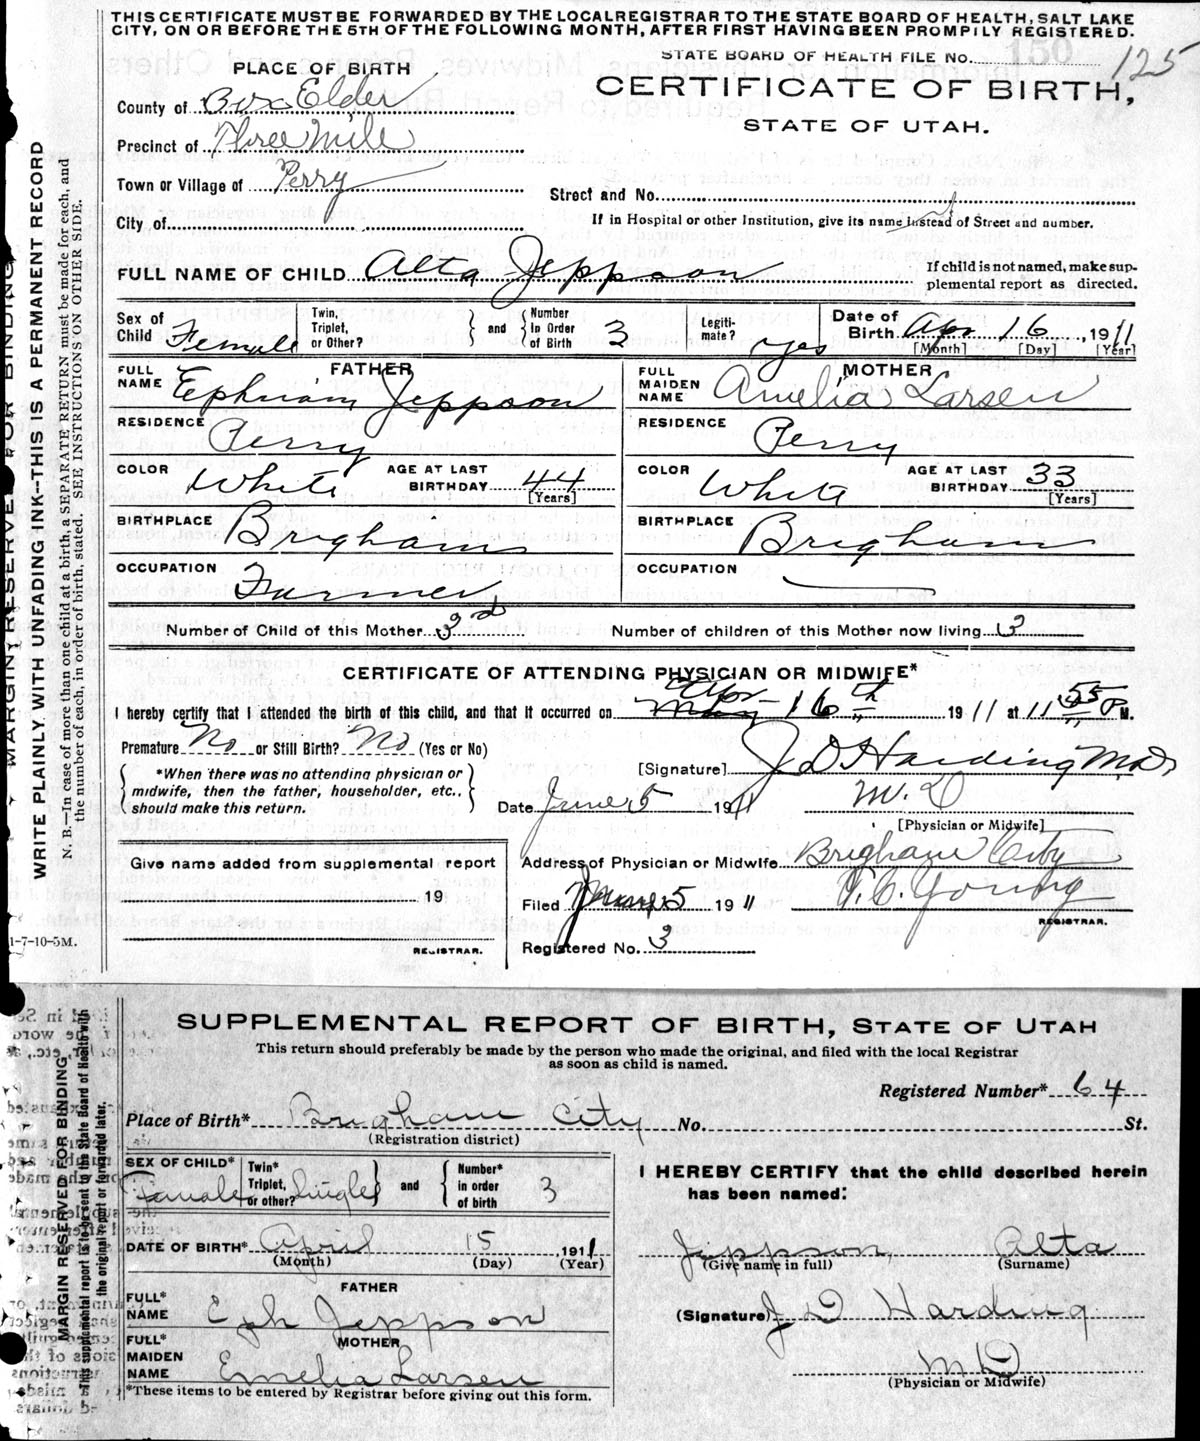 THIS CERTIFICATE MUST BE FORWARDED BY THE LOCAL REGISTRAR TO THE STATE BOARD OF HEALTH, SALT LAKE
CITY, ON OR BEFORE THE 5TH OF THE FOLLOWING MONTH, AFTER FIRST HAVING BEEN PROMPILY REGISTERED.
STATE BOARD OF HEALTH FILE NO. 150 125
PLACE OF BIRTH
CERTIFICATE OF BIRTH,
STATE OF UTAH.
County of Box Elder
Precinct of Three Mile
Town or Village of Perry
Street and No.
City of
If in Hospital or other Institution, give its name instead of Street and number.
FULL NAME OF CHILD Alta Jeppson
If child is not named, make sup-
plemental report as directed.
Sex of Child Female
Twin, Triplet, or Other?
and
Number In Order of Birth 3
Legiti-mate? yes
Date of Birth Apr 16, 1911
[Month] [Day] [Year]
FATHER
FULL NAME Ephriam Jeppson
RESIDENCE Perry
COLOR White AGE AT LAST BIRTHDAY 44
[Years]
BIRTHPLACE Brigham
OCCUPATION Farmer
MOTHER
FULL MAIDEN NAME Amelia Larsen
RESIDENCE Perry
COLOR White AGE AT LAST BIRTHDAY 33
[Years]
BIRTHPLACE Brigham
OCCUPATION
Number of Child of this Mother 3rd Number of children of this Mother now living 3
CERTIFICATE OF ATTENDING PHYSICIAN OR MIDWIFE*
Apr
I hereby certify that I attended the birth of this child, and that it occurred on May 16th 1911 at 11 55 P M.
Premature No or Still Birth? No (Yes or No)
[Signature] J D Harding M.D.
*When there was no attending physician or
midwife, then the father, householder, etc.,
should make this return.
Date June 5 1911 M. D
[Physician or Midwife]
Give name added from supplemental report
19
REGISTRAR.
Address of Physician or Midwife Brigham City
Filed June 5 1911 Young
REGISTRAR.
Registered No. 3
1-7-10-5M.
MARGIN RESERVED FOR BINDING
WRITE PLAINLY WITH UNFADING INK--THIS IS A PERMANENT RECORD
N. B.—In case of more than one child at a birth, a SEPARATE RETURN must be made for each, and
the number of each, in order of birth, stated. SEE INSTRUCTIONS ON OTHER SIDE.
SUPPLEMENTAL REPORT OF BIRTH, STATE OF UTAH
This return should preferably be made by the person who made the original, and filed with the local Registrar
as soon as child is named.
Registered Number* 64
Place of Birth* Brigham City No. St.
(Registration district)
SEX OF CHILD* Female
Twin* Triplet, or other? Single
and
Number* in order of birth 3
DATE OF BIRTH* April 15, 1911
(Month) (Day) (Year)
FATHER
FULL* NAME Eph Jeppson
MOTHER
FULL* MAIDEN NAME Emelia Larsen
*These items to be entered by Registrar before giving out this form.
I HEREBY CERTIFY that the child described herein
has been named:
Jeppson, Alta
(Give name in full) (Surname)
(Signature) J D Harding
M D
(Physician or Midwife)
MARGIN RESERVED FOR BINDING
This supplemental report is to be sent to the State Board of Health with
the original report or forwarded later.